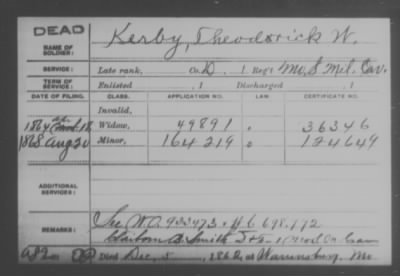 DEAD
NAME OF SOLDIER: Kerby, Theodorick W.
SERVICE: Late rank, Co. D, 1 Reg't Mo. S. Mil. Cav.
TERM OF SERVICE: Enlisted , 1 Discharged , 1
DATE OF FILING. CLASS. APPLICATION NO. LAW. CERTIFICATE NO.
Invalid,
1864 18 Widow, 49891 36346
1868 Aug 20 Minor, 164219 124649
ADDITIONAL SERVICES:
See W.O. 933473 698,772
REMARKS: Claiborn B. Smith
Died Dec. 5, 1862, at Warrensburg, Mo.